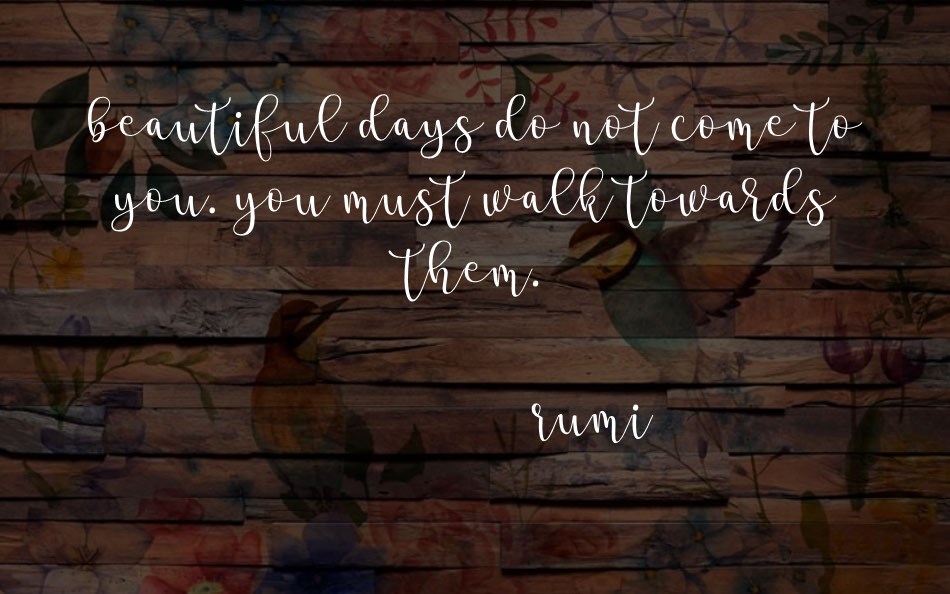 beautiful days do not come to
you. you must walk towards
them.
rumi